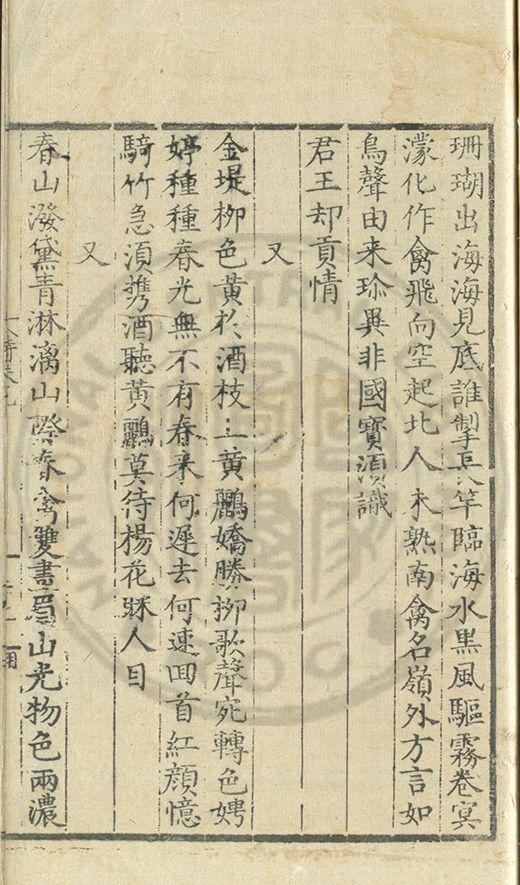 珊瑚出海海見底誰掣長竿臨海水黒風驅霧卷㝠
濛化作禽飛向空起北人未熟南禽名嶺外方言如
鳥聲由来珎異非國寳湏識
君王却貢情
又
金堤柳色黄於酒枝上黄鸝嬌勝柳歌聲宛轉色娉
婷種種春光無不有春来何遲去何速囬首紅顔憶
騎竹急須携酒聽黄鸝莫待楊花眯人目
又
春山潑黛青淋漓山際春禽雙畫眉山光物色兩濃